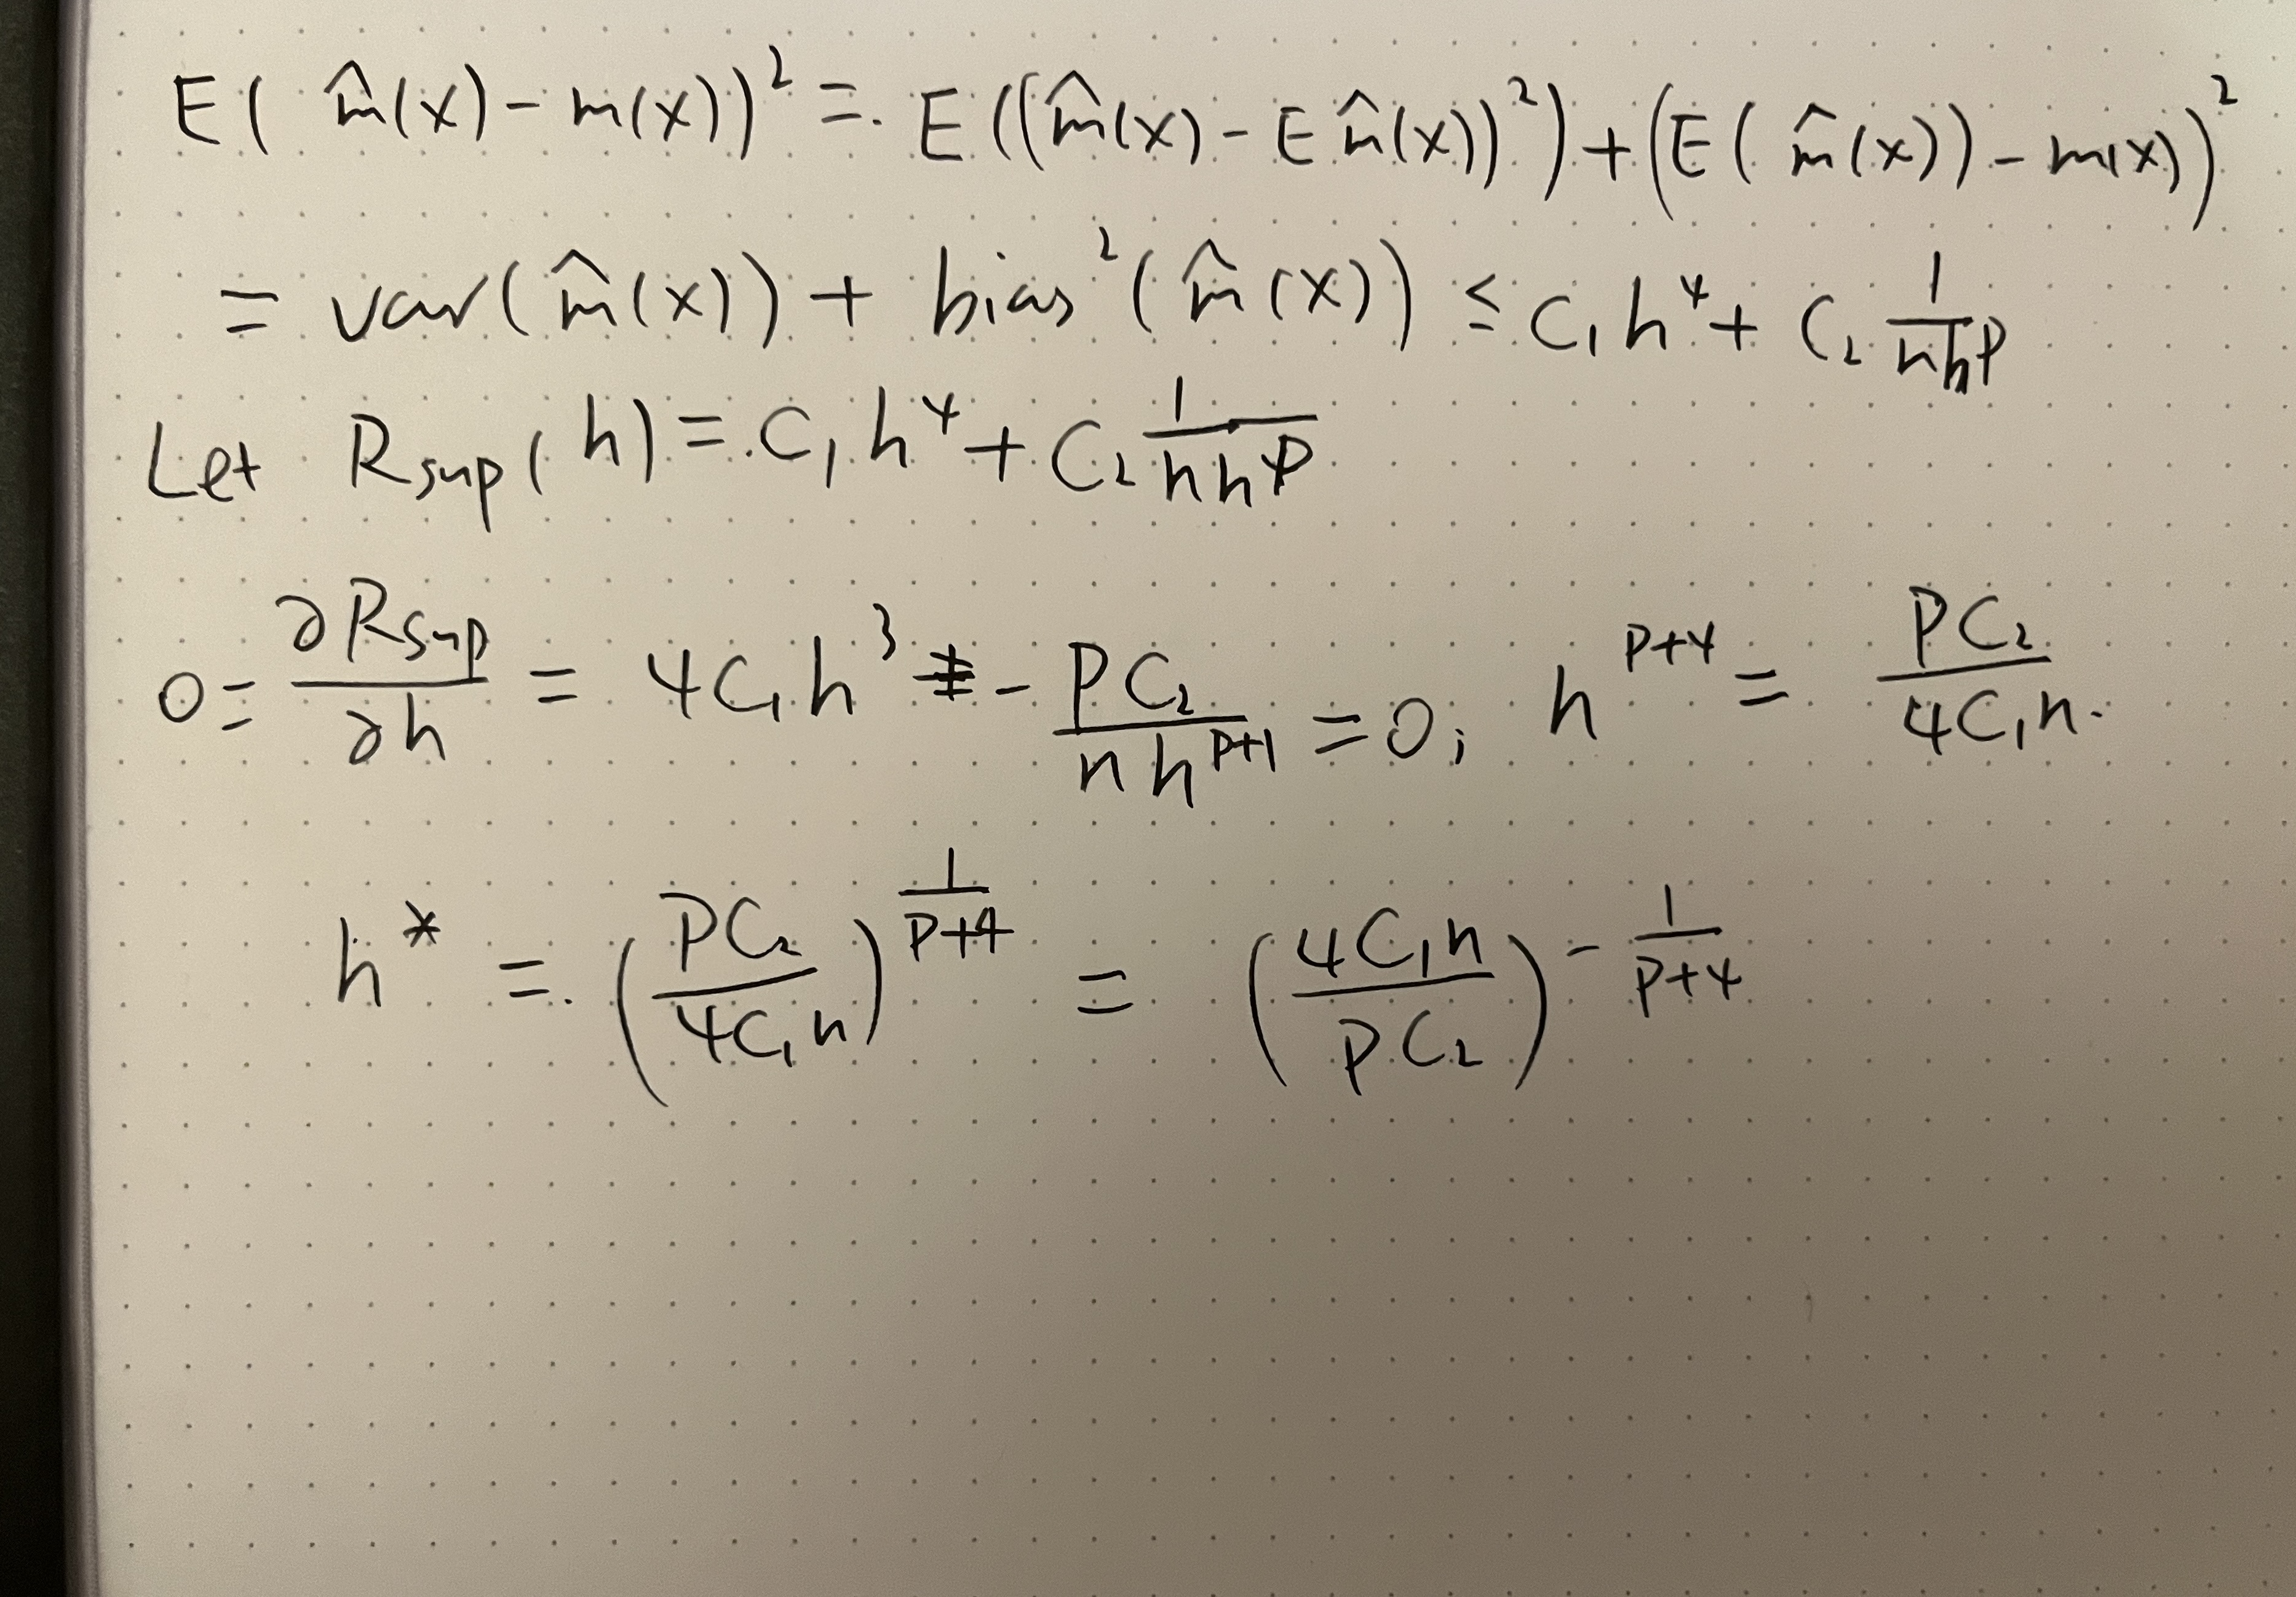 E( m̂(x) - m(x))² = E((m̂(x) - E m̂(x))²) + (E( m̂(x)) - m(x))²
= var(m̂(x)) + bias²(m̂(x)) ≤ C₁h⁴ + C₂ 1/(nh^p)
Let R_sup(h) = C₁h⁴ + C₂ 1/(nh^p)
0 = ∂R_sup/∂h = 4C₁h³ - PC₂/(nh^(p+1)) = 0; h^(p+4) = PC₂/(4C₁n).
h* = (PC₂/(4C₁n))^(1/(p+4)) = (4C₁n/(PC₂))^(-1/(p+4))